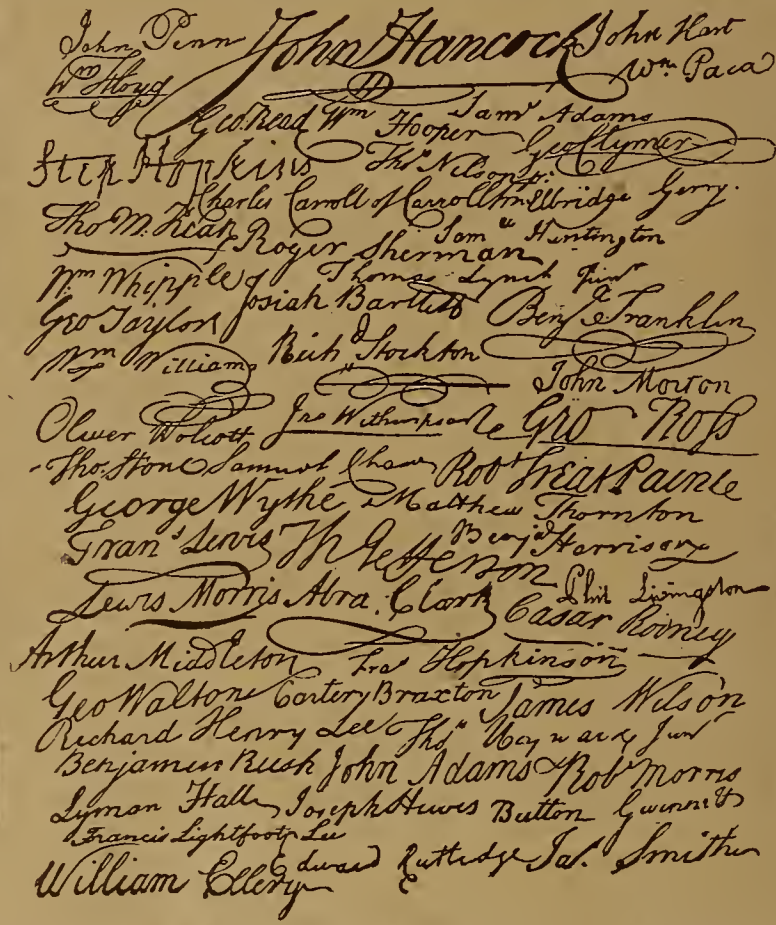 John Penn John Hancock John Hart
Wm Floyd Wm. Paca
Geo. Read Wm Hooper Saml Adams
Step. Hopkins Thos. Nelson jr. Geo Clymer
Charles Carroll of Carrollton Elbridge Gerry.
Tho M. Kean Roger Sherman Saml Huntington
Wm Whipple Josiah Bartlett Thomas Lynch Junr
Geo Taylor Benj Franklin
Wm Williams Richd Stockton
John Morton
Oliver Wolcott Jno Witherspoon Geo Ross
Tho. Stone Samuel Chase Robt Treat Paine
George Wythe Matthew Thornton
Frans Lewis Th Jefferson Benja Harrison
Lewis Morris Abra. Clark Phil Livingston
Casar Rodney
Arthur Middleton Fras Hopkinson
Geo Walton Carter Braxton James Wilson
Richard Henry Lee Thos Heyward Junr
Benjamin Rush John Adams Robt Morris
Lyman Hall Joseph Hewes Button Gwinnett
Francis Lightfoot Lee
William Ellery Edward Rutledge Jas. Smith